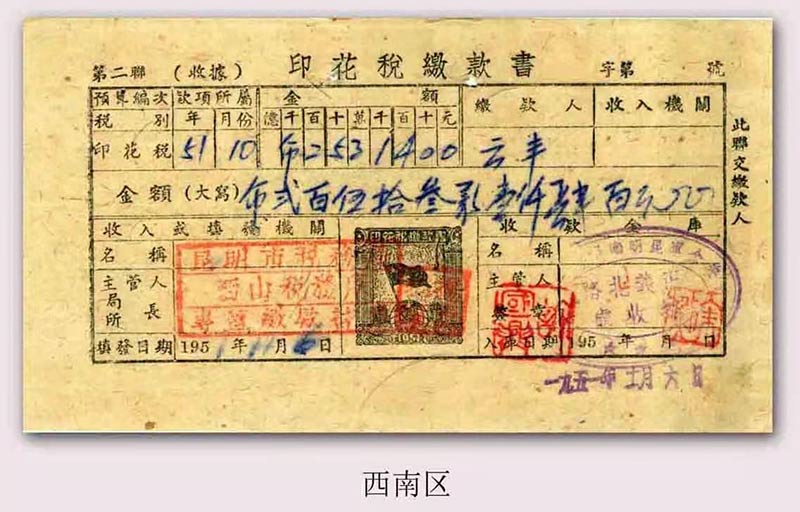 第二聯 (收據) 印花稅繳款書 字第 號
預算編次 款項所屬 金 額 繳款人 收入機關
稅別 年 月份 億千百十萬千百十元
印花稅 51 10 2531400 云丰
金額(大寫) 币弍百伍拾叁萬壹仟肆百元
收入或填補機關 收款金庫
名稱 昆明市稅 名稱
主管人 局所長 西山稅 主管人
填發日期 195 年 月 日 入庫日期 195 年 月 日
一九五一年 月六日
此聯交繳款人
西南区